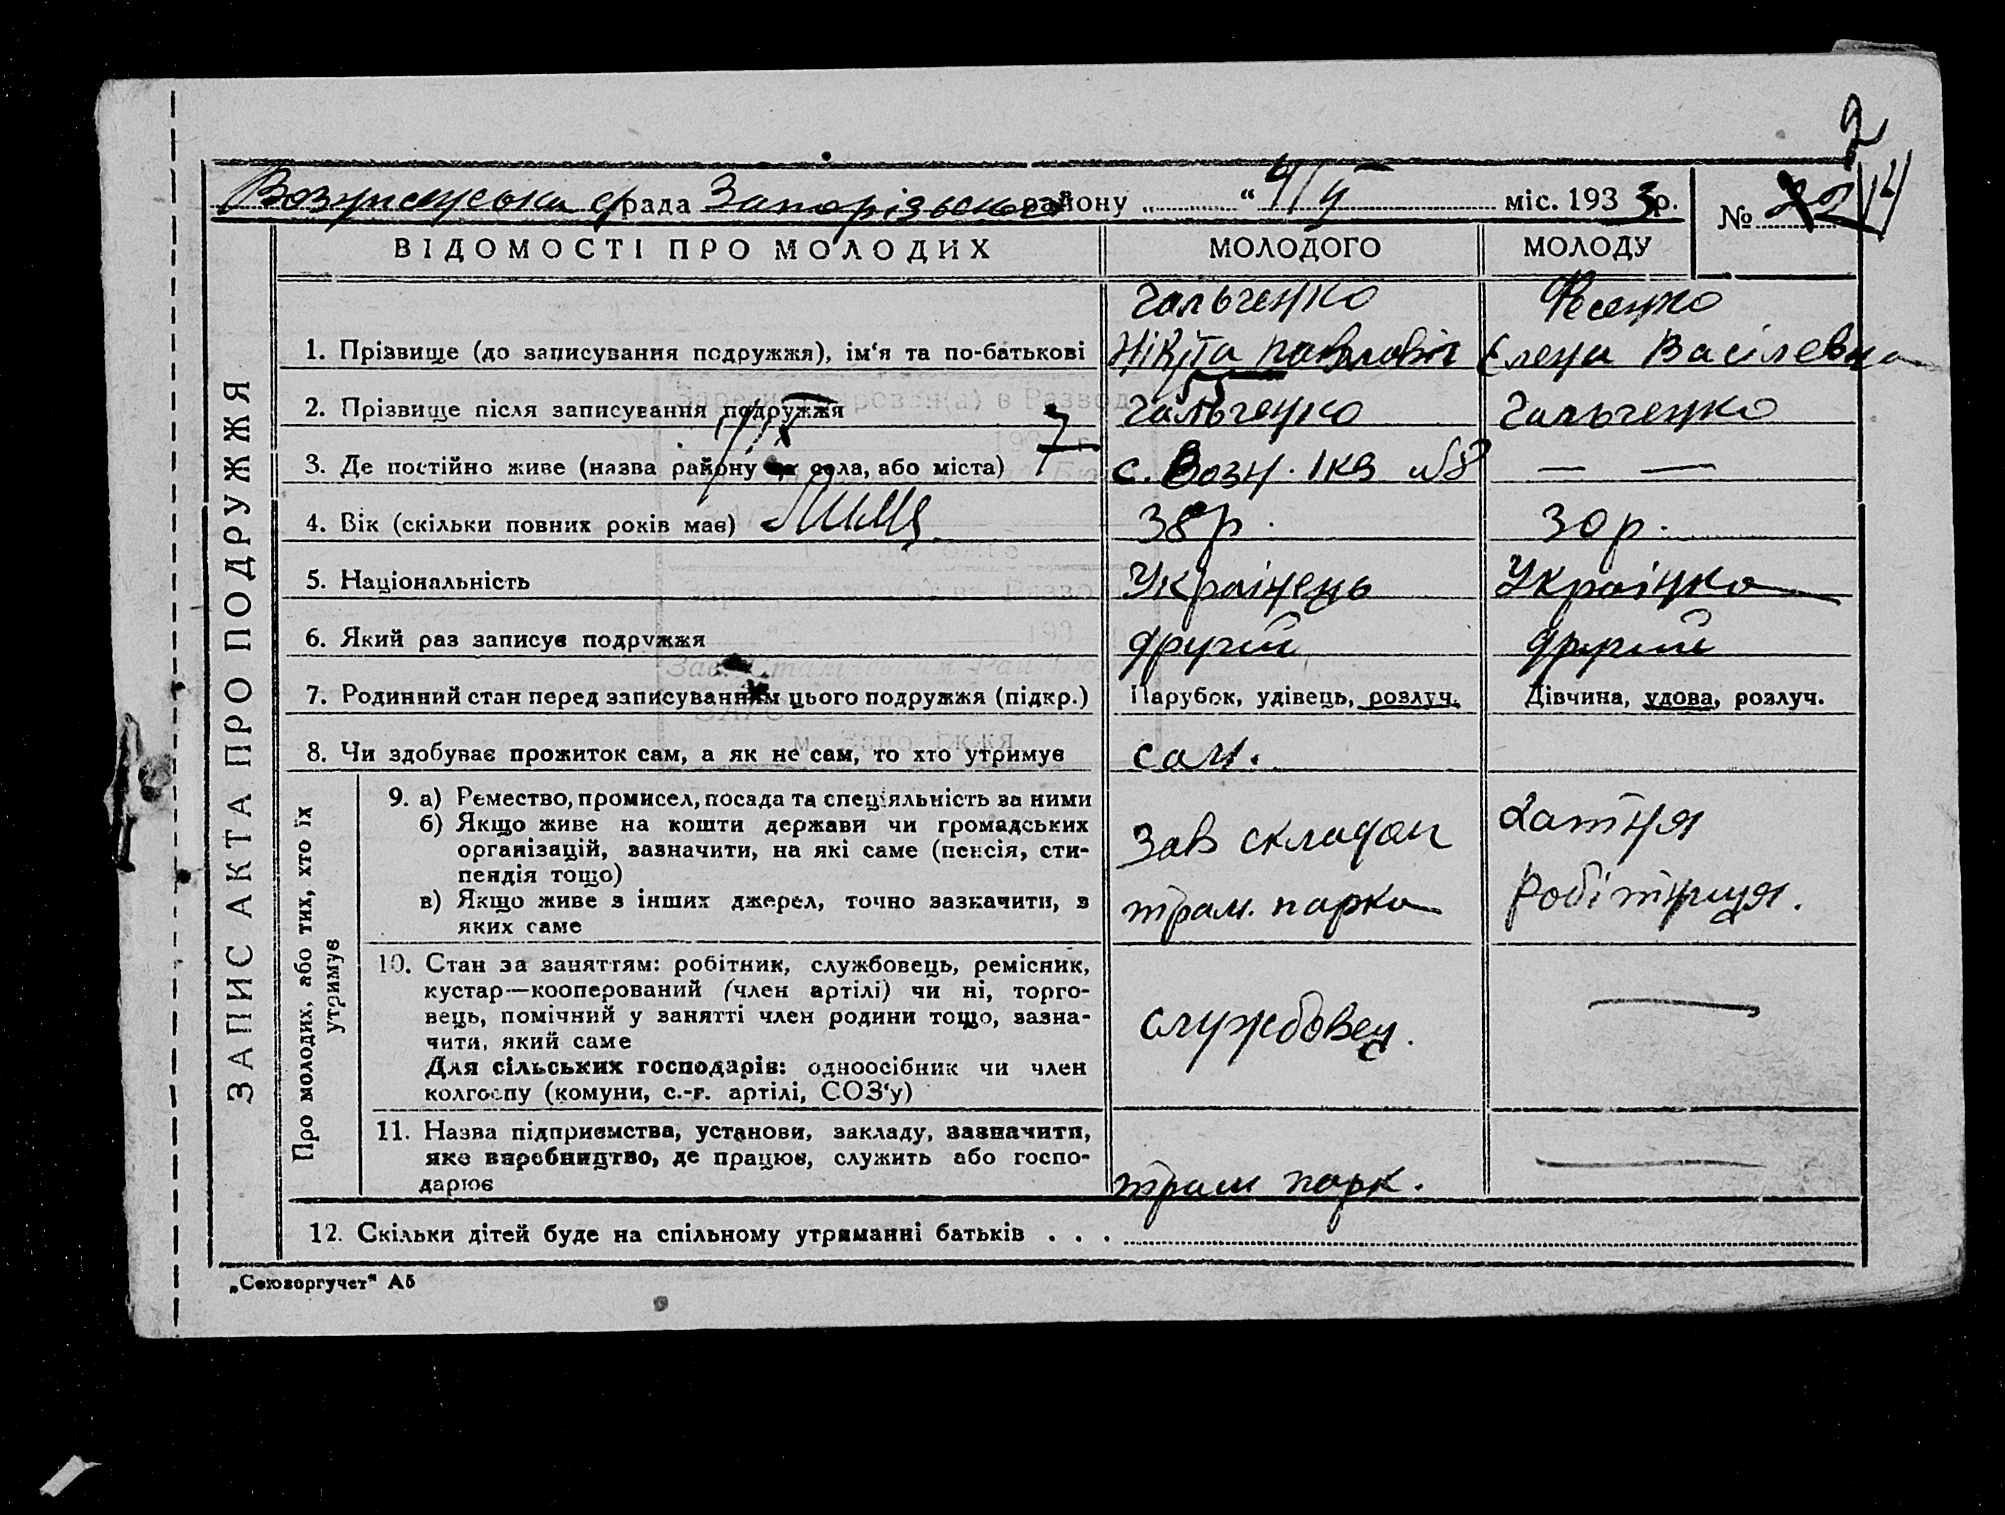 2
с/рада району „ “ 4/ міс. 1933 р. № 14
ВІДОМОСТІ ПРО МОЛОДИХ МОЛОДОГО МОЛОДУ
Гальченко Фесенко
1. Прізвище (до записування подружжя), ім‘я та по-батькові Нікіта Павловіч Єлена Васілевна
2. Прізвище після записування подружжя Гальченко Гальченко
3. Де постійно живе (назва району та села, або міста) с. Возн. 1 кв №8 — —
4. Вік (скільки повних років має) 38 р. 30 р.
5. Національність Українець Українка
6. Який раз записує подружжя другий другий
7. Родинний стан перед записуванням цього подружжя (підкр.) Парубок, удівець, розлуч. Дівчина, удова, розлуч.
8. Чи здобуває прожиток сам, а як не сам, то хто утримує сам.
ЗАПИС АКТА ПРО ПОДРУЖЖЯ
Про молодих, або тих, хто їх
утримує
9. а) Ремество, промисел, посада та спеціяльність за ними
б) Якщо живе на кошти держави чи громадських
організацій, зазначити, на які саме (пенсія, сти-
пендія тощо)
в) Якщо живе з інших джерел, точно зазначити, з
яких саме
зав складом
трам. парка
Хатня
робітниця.
10. Стан за заняттям: робітник, службовець, ремісник,
кустар—кооперований (член артілі) чи ні, торго-
вець, помічний у занятті член родини тощо, зазна-
чити, який саме
Для сільських господарів: одноосібник чи член
колгоспу (комуни, с.-г. артілі, СОЗ‘у)
службовец.
11. Назва підприємства, установи, закладу, зазначити,
яке виробництво, де працює, служить або госпо-
дарює
трам парк.
12. Скільки дітей буде на спільному утриманні батьків . . .
„Союзоргучет“ А5